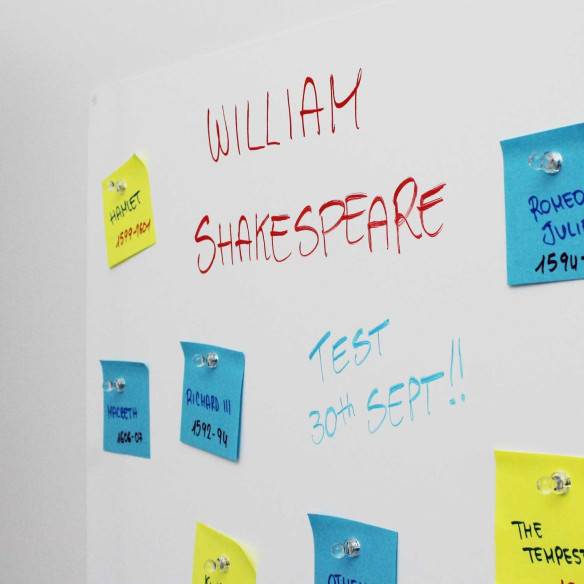 WILLIAM
SHAKESPEARE
HAMLET
1599-1601
ROMEO
JULI
1594-
TEST
30th SEPT!!
MACBETH
1606-07
RICHARD III
1592-94
THE
TEMPEST
OTHE